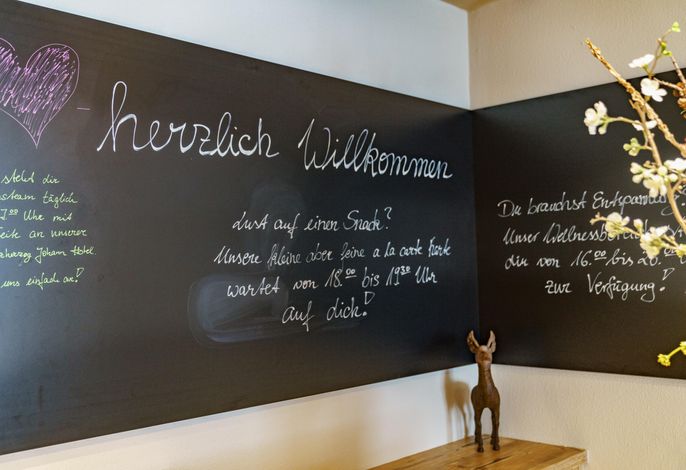 herzlich Willkommen
steht dir
team täglich
7.00 Uhr mit
Seite an unserer
Erzherzog Johann Hotel.
uns einfach an!
Lust auf einen Snack?
Unsere kleine aber feine a la carte Karte
wartet von 18.00 bis 19.30 Uhr
auf dich!
Du brauchst Entspannung?
Unser Wellnessbereich
dir von 16.00 bis 20.00
zur Verfügung!